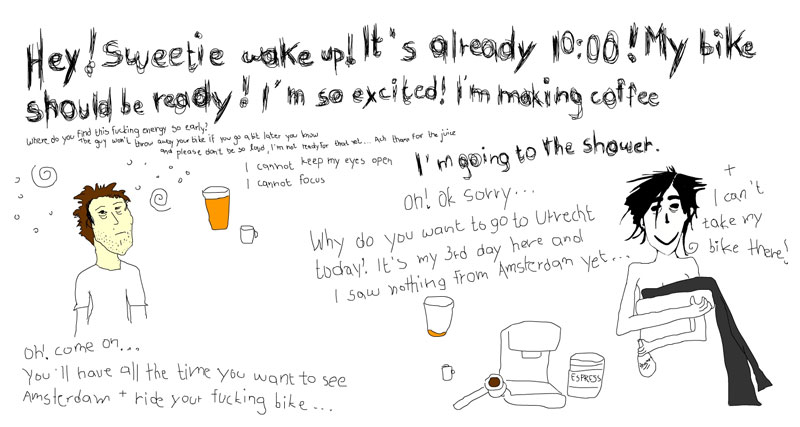 Hey! Sweetie wake up! It's already 10:00! My bike
should be ready! I'm so excited! I'm making coffee
Where do you find this fucking energy so early?
The guy won't throw away your bike if you go a bit later you know
and please don't be so loud, I'm not ready for that yet... Ach thanx for the juice
I cannot keep my eyes open
I cannot focus
I'm going to the shower.
Oh! Ok sorry...
Why do you want to go to Utrecht
today? It's my 3rd day here and
I saw nothing from Amsterdam yet...
+
I can't
take my
bike there!
Oh! come on...
You'll have all the time you want to see
Amsterdam + ride your fucking bike...
ESPRESS